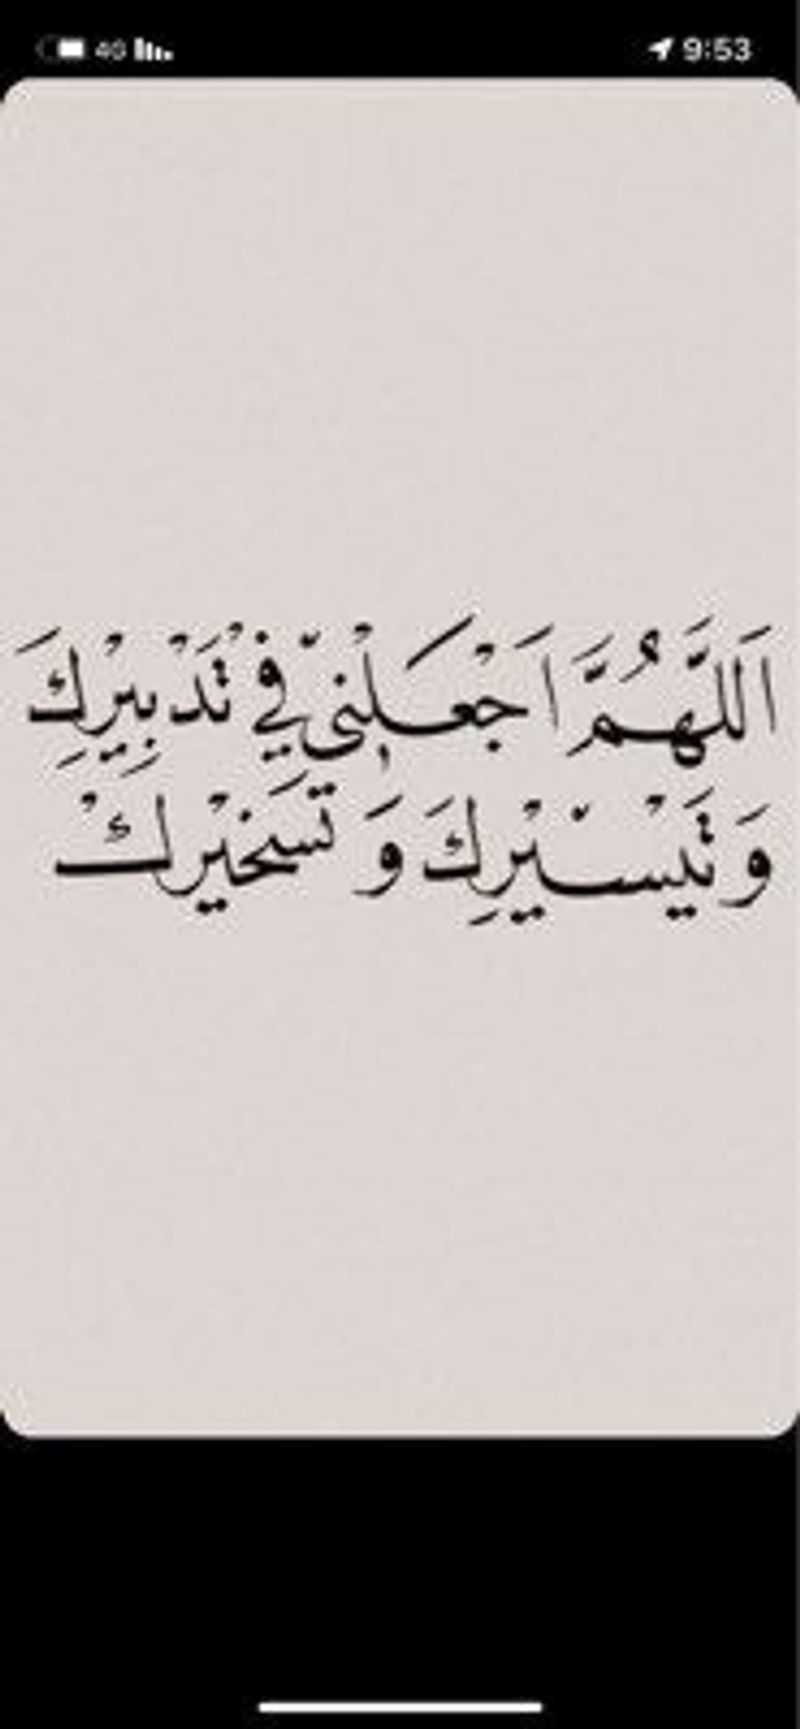 4G 9:53
اَللَّهُمَّ اَجْعَلْنيّ فِي تَدْبِيْرِكَ
وَ تَيْسيْرِكَ وَ تَسَخيْرِكْ